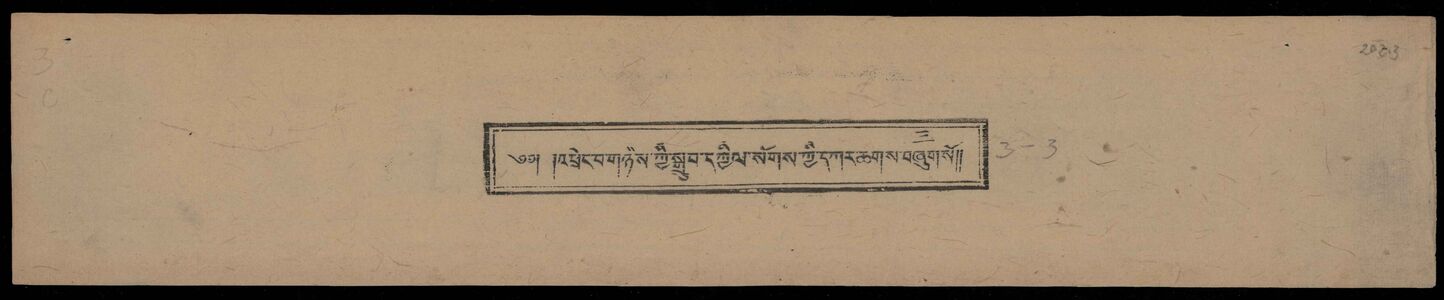 2903
三
༄༅། །འཕྲེང་བ་གཉིས་ཀྱི་སྒྲུབ་དཀྱིལ་སོགས་ཀྱི་དཀར་ཆགས་བཞུགས་སོ།།
3-3
3